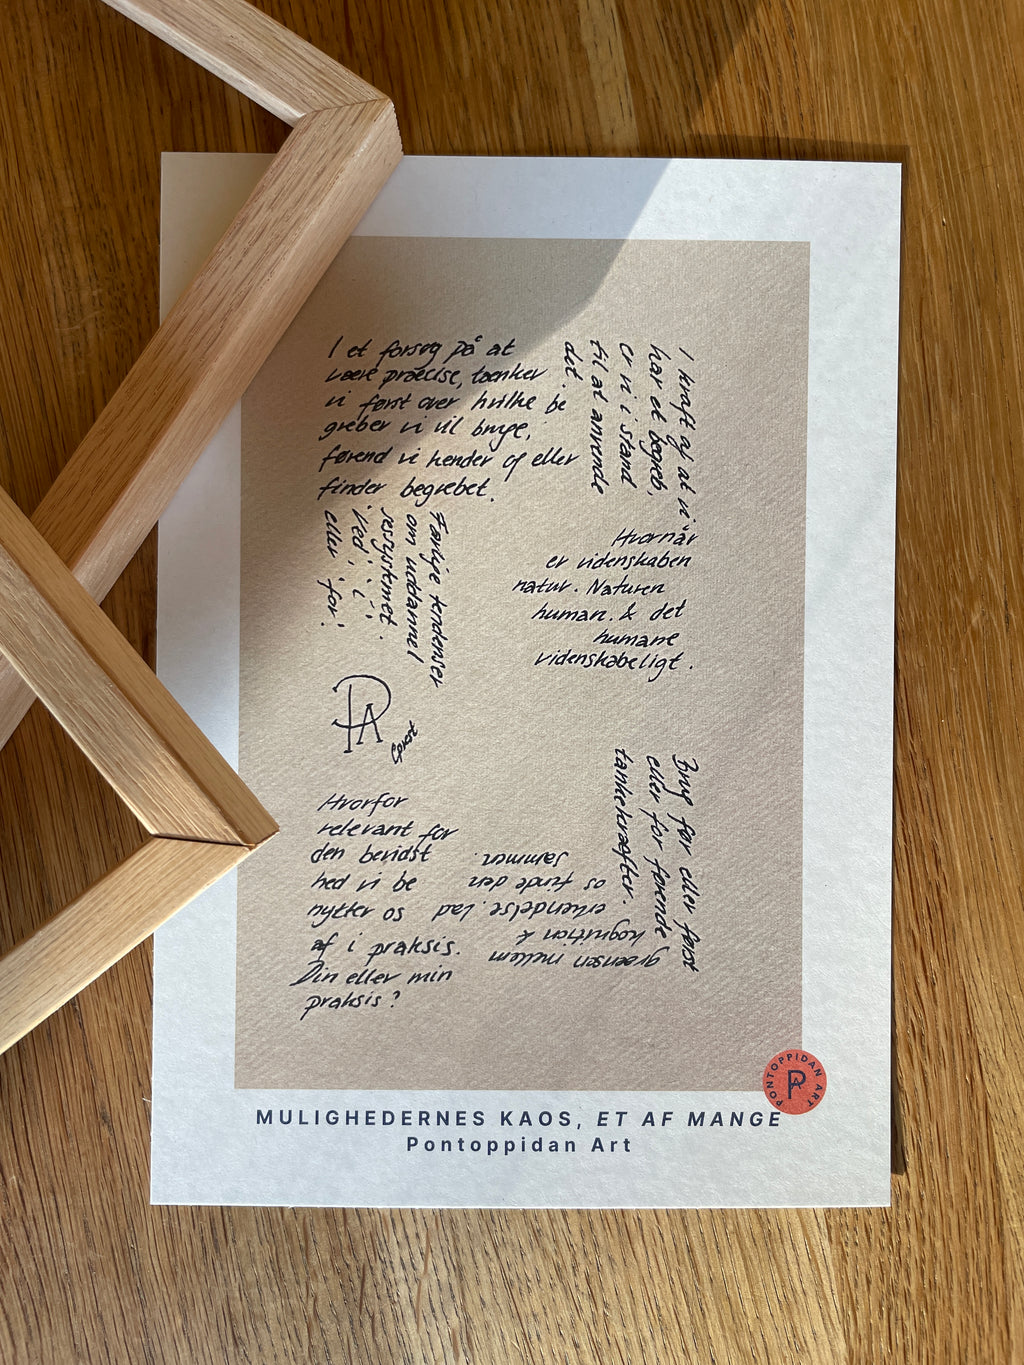 I et forsøg på at
være præcise, tænker
vi først over hvilke be
greber vi vil bruge,
førend vi kender af eller
finder begrebet.
I kraft af at vi
har et begreb,
er vi i stand
til at anvende
det.
Hvornår
er videnskaben
natur. Naturen
human. & det
humane
videnskabeligt.
Færlige tendenser
om uddannel
sessystemet.
'Ved', 'i'
eller 'for'
PA
Hvorfor
relevant for
den bevidst
hed vi be
nytter os
af i praksis.
Din eller min
praksis?
Brug før eller først
eller for 'førende'
tankekræfter.
grænsen mellem
kognition &
erkendelse. Lad
os finde den
sammen.
PONTOPPIDAN ART
MULIGHEDERNES KAOS, ET AF MANGE
Pontoppidan Art